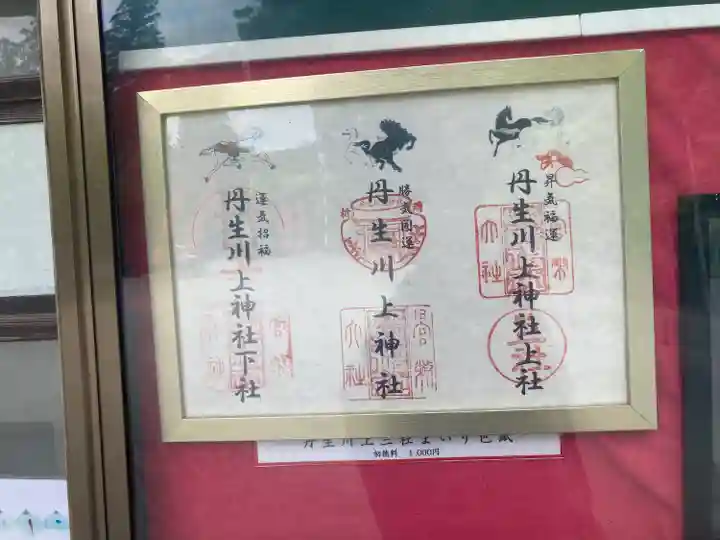 昇気福運
丹生川上神社上社
勝気開運
丹生川上神社
運気招福
丹生川上神社下社
官幣
大社
官幣
大社
官幣
丹生川上三社まいり色紙
初穂料 1,000円